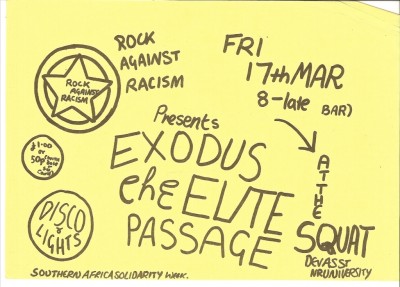 ROCK
AGAINST
RACISM
ROCK
AGAINST
RACISM
FRI
17thMAR
8-late BAR)
Presents
EXODUS
the ELITE
PASSAGE
£1-00
or
50p
AT THE
SQUAT
DEVASST
NRUNIVERSITY
DISCO
&
LIGHTS
SOUTHERN AFRICA SOLIDARITY WEEK.